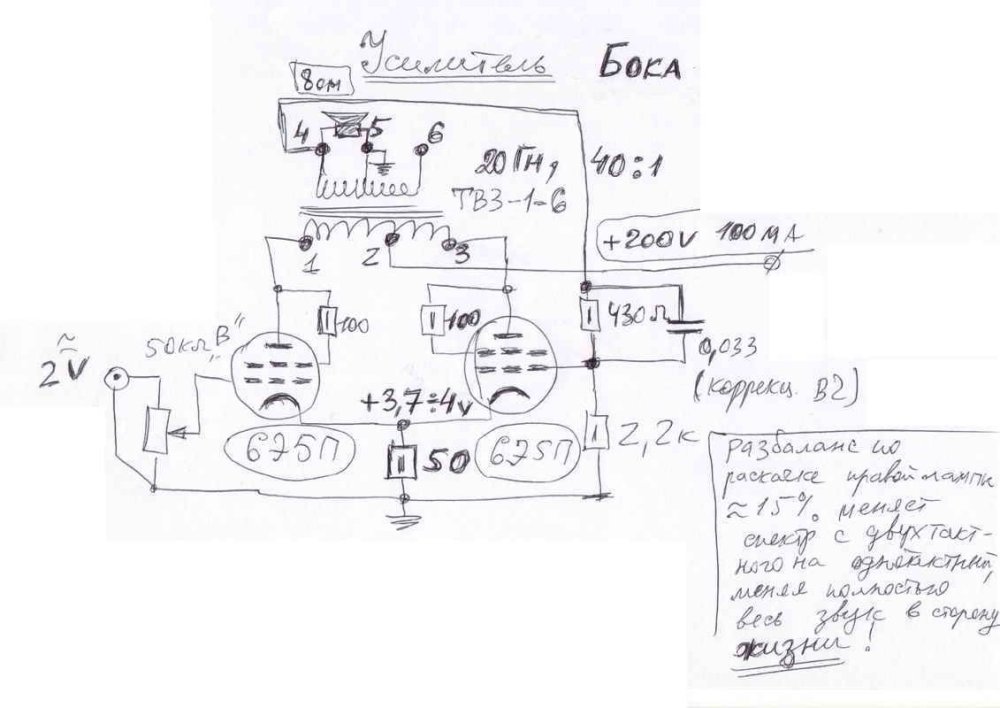 Усилитель Бока
8 ом
4 5 6
20 Гн, 40:1
ТВЗ-1-6
+200V 100 мА
1 2 3
100
100
430 Ω
0,033
(коррекц. В2)
50к „В"
~
2V
+3,7÷4v
6Э5П
50
6Э5П
2,2к
Разбаланс по
раскачке правой лампы
≈15% меняет
спектр с двухтакт-
ного на однотактный,
меняя полностью
весь звук в сторону
жизни!